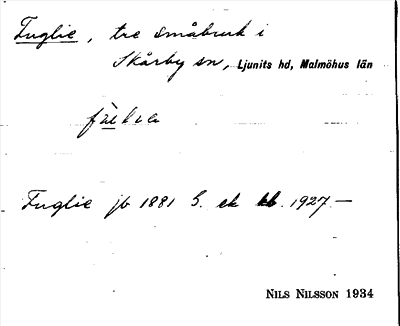 Fuglie, tre småbruk i
Skårby sn, Ljunits hd, Malmöhus län
Fuglie jb 1881 S. ek kb. 1927 —
NILS NILSSON 1934